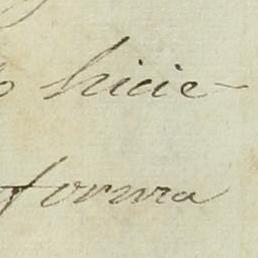 hicie-
forma